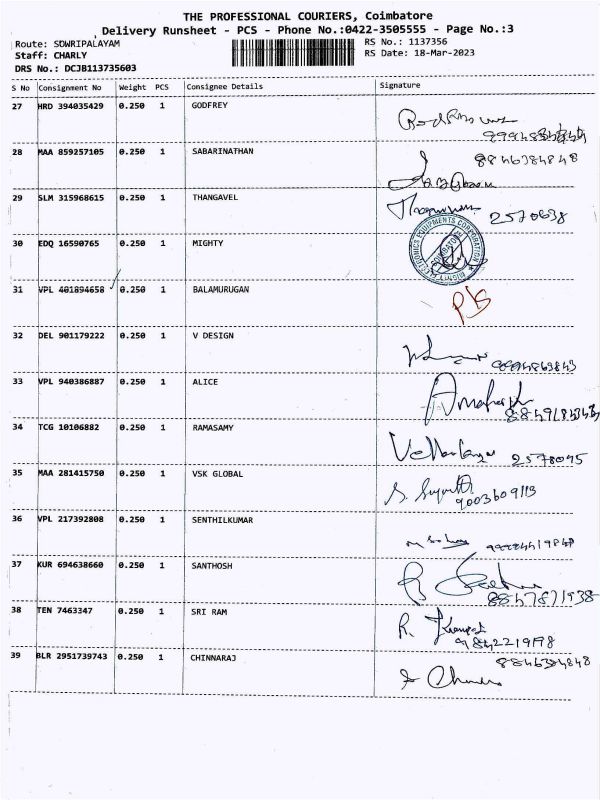 THE PROFESSIONAL COURIERS, Coimbatore
Delivery Runsheet - PCS - Phone No.:0422-3505555 - Page No.:3
Route: SOWRIPALAYAM RS No.: 1137356
Staff: CHARLY RS Date: 18-Mar-2023
DRS No.: DCJB113735603
S No Consignment No Weight PCS Consignee Details Signature
27 HRD 394035429 0.250 1 GODFREY
28 MAA 859257105 0.250 1 SABARINATHAN
8846384848
29 SLM 315968615 0.250 1 THANGAVEL
2570638
30 EDQ 16590765 0.250 1 MIGHTY
31 VPL 401894658 0.250 1 BALAMURUGAN
32 DEL 901179222 0.250 1 V DESIGN
33 VPL 940386887 0.250 1 ALICE
34 TCG 10106882 0.250 1 RAMASAMY
2578095
35 MAA 281415750 0.250 1 VSK GLOBAL
9003609113
36 VPL 217392808 0.250 1 SENTHILKUMAR
37 KUR 694638660 0.250 1 SANTHOSH
8847871938
38 TEN 7463347 0.250 1 SRI RAM
39 BLR 2951739743 0.250 1 CHINNARAJ
8846384848